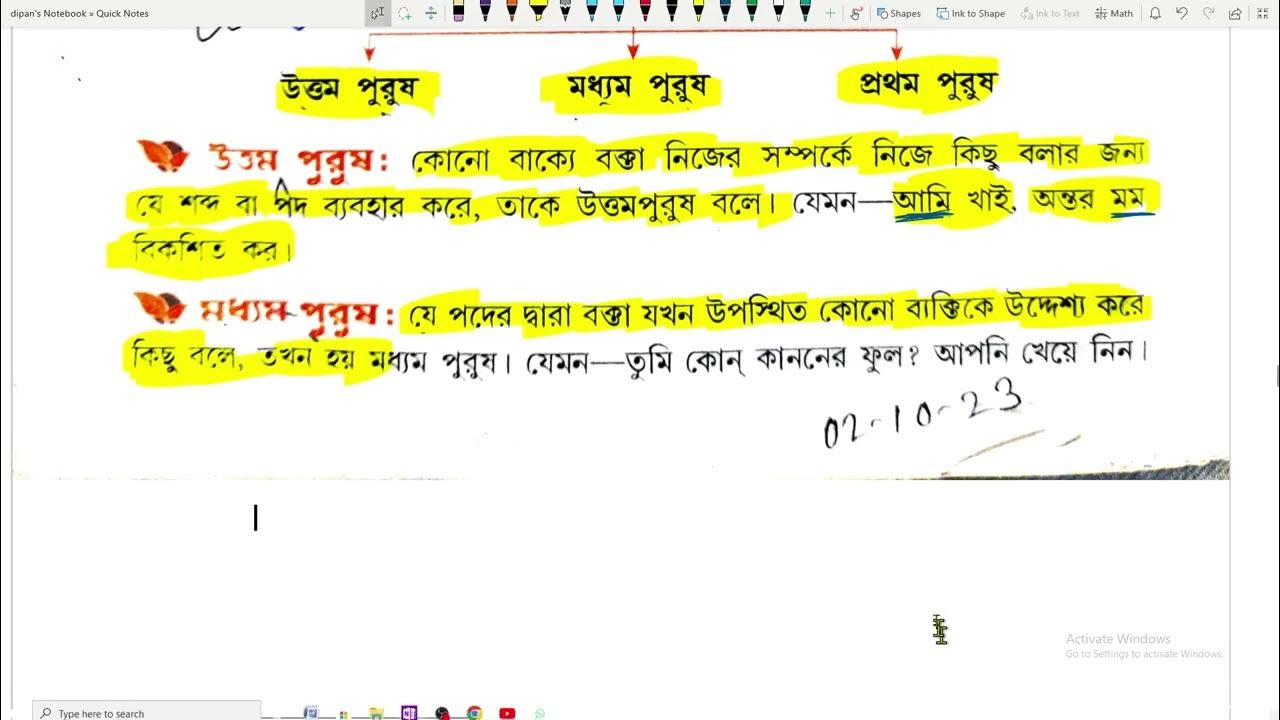 dipan's Notebook » Quick Notes
Shapes Ink to Shape Ink to Text Math
উত্তম পুরুষ মধ্যম পুরুষ প্রথম পুরুষ
উত্তম পুরুষ: কোনো বাক্যে বক্তা নিজের সম্পর্কে নিজে কিছু বলার জন্য
যে শব্দ বা পদ ব্যবহার করে, তাকে উত্তমপুরুষ বলে। যেমন—আমি খাই, অন্তর মম
বিকশিত কর।
মধ্যম পুরুষ: যে পদের দ্বারা বক্তা যখন উপস্থিত কোনো ব্যক্তিকে উদ্দেশ্য করে
কিছু বলে, তখন হয় মধ্যম পুরুষ। যেমন—তুমি কোন্ কাননের ফুল? আপনি খেয়ে নিন।
02-10-23
Activate Windows
Go to Settings to activate Windows.
Type here to search